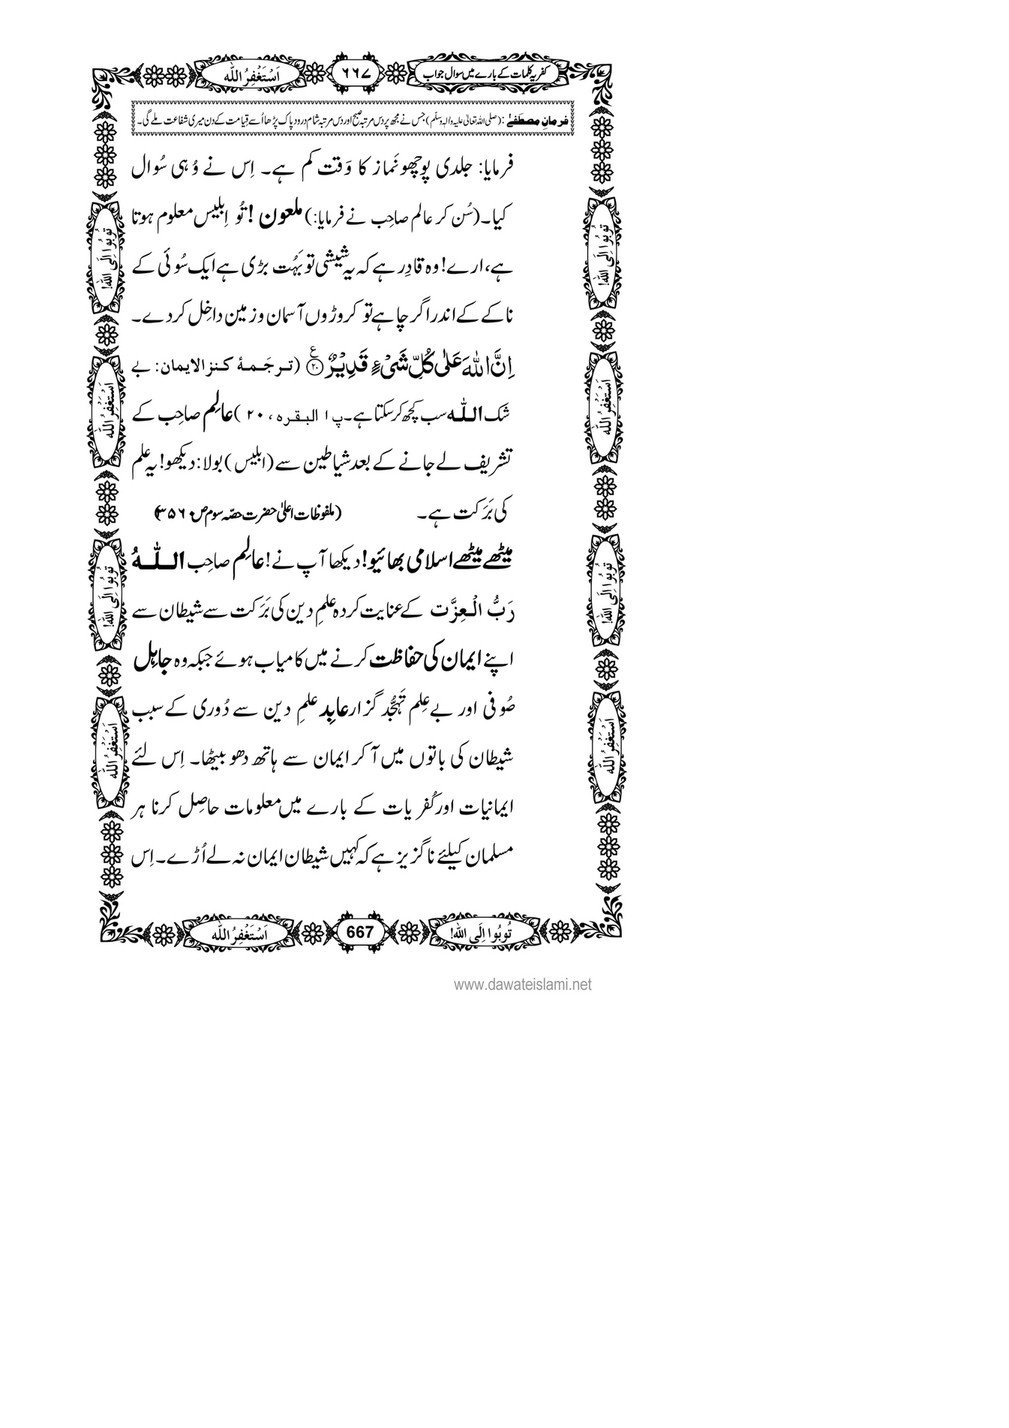 کفریہ کلمات کے بارے میں سوال جواب
٦٦٧
اَسْتَغْفِرُ اللّٰه
فرمانِ مصطَفٰے : (صلی اللہ تعالیٰ علیہ والہ وسلم) جس نے مجھ پر دس مرتبہ صبح اور دس مرتبہ شام درود پاک پڑھا اُسے قیامت کے دن میری شفاعت ملے گی۔
فرمایا: جلدی پوچھو نَماز کا وَقت کم ہے۔ اِس نے وُہی سُوال
کیا۔ (سُن کر عالم صاحِب نے فرمایا:) ملعون ! تُو اِبلیس معلوم ہوتا
ہے، ارے! وہ قادِر ہے کہ یہ شیشی تو بَہُت بڑی ہے ایک سُوئی کے
ناکے کے اندر اگر چاہے تو کروڑوں آسمان و زمین داخِل کر دے۔
اِنَّ اللّٰهَ عَلٰی كُلِّ شَیْءٍ قَدِیْرٌ ﴿۲۰﴾ (ترجَمهٔ كنز الايمان: بے
شک اللّٰه سب کچھ کر سکتا ہے۔ پ ۱ البقره ، ۲۰ ) عالِم صاحِب کے
تشریف لے جانے کے بعد شیاطین سے (ابلیس) بولا: دیکھو! یہ علم
کی بَرَکت ہے۔ (ملفوظات اعلیٰ حضرت حصّہ سوم ص ۳۵۶)
میٹھے میٹھے اسلامی بھائیو! دیکھا آپ نے! عالِم صاحِب اللّٰهُ
رَبُّ الْعِزَّت کے عنایت کردہ علمِ دین کی بَرَکت سے شیطان سے
اپنے ایمان کی حفاظت کرنے میں کامیاب ہوئے جبکہ وہ جاہِل
صُوفی اور بے عِلم تہجُّد گزار عابِد علمِ دین سے دُوری کے سبب
شیطان کی باتوں میں آ کر ایمان سے ہاتھ دھو بیٹھا۔ اِس لئے
ایمانیات اور کُفریات کے بارے میں معلومات حاصِل کرنا ہر
مسلمان کیلئے ناگزیز ہے کہ کہیں شیطان ایمان نہ لے اُڑے۔ اِس
تُوبُوا اِلَی اللّٰه!
اَسْتَغْفِرُ اللّٰه
تُوبُوا اِلَی اللّٰه!
اَسْتَغْفِرُ اللّٰه
تُوبُوا اِلَی اللّٰه!
اَسْتَغْفِرُ اللّٰه
تُوبُوا اِلَی اللّٰه!
اَسْتَغْفِرُ اللّٰه
تُوبُوا اِلَی اللّٰه!
667
اَسْتَغْفِرُ اللّٰه
www.dawateislami.net